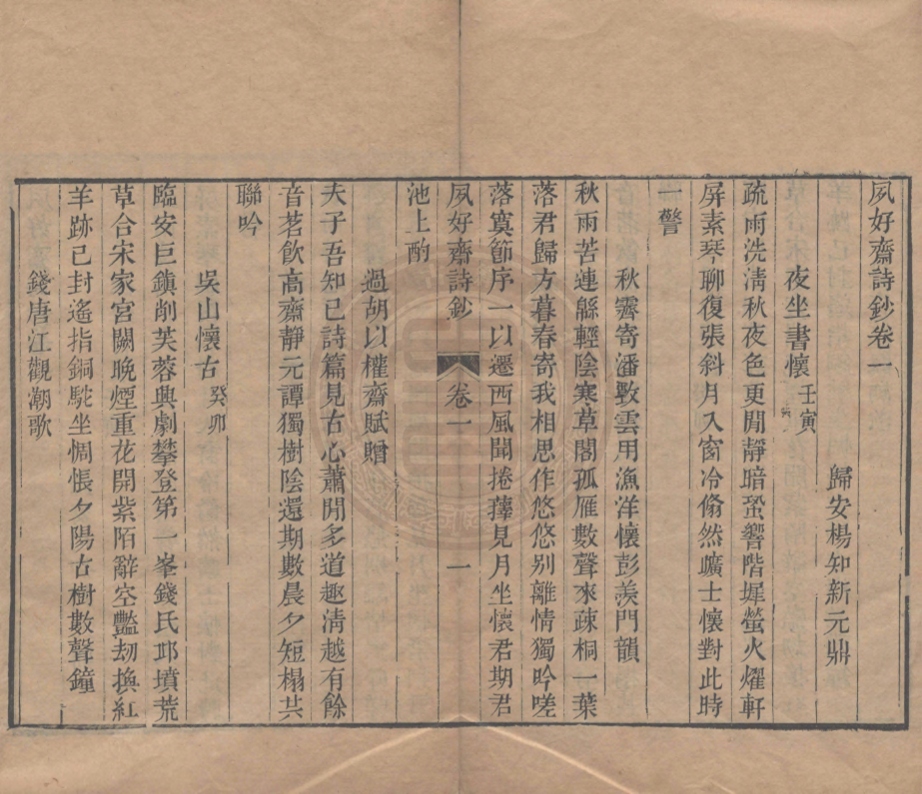 夙好齋詩鈔卷一
歸安楊知新元鼎
夜坐書懷 壬寅
疏雨洗淸秋夜色更閒靜暗蛩響階墀螢火燿軒
屏素琴聊復張斜月入窗冷翛然曠士懷對此時
一警
秋霽寄潘斅雲用漁洋懷彭羨門韻
秋雨苦連緜輕陰寒草閣孤雁數聲來疎桐一葉
落君歸方暮春寄我相思作悠悠别離情獨吟嗟
落寞節序一以遷西風聞捲蘀見月坐懷君期君
夙好齋詩鈔 卷一 一
池上酌
過胡以權齋賦贈
夫子吾知已詩篇見古心蕭閒多道趣淸越有餘
音茗飮高齋靜元譚獨樹陰還期數晨夕短榻共
聯吟
吳山懷古 癸卯
臨安巨鎭削芙蓉興劇攀登第一峯錢氏邱墳荒
草合宋家宮闕晩煙重花開紫陌辭空豔劫換紅
羊跡已封遙指銅駝坐惆悵夕陽古樹數聲鐘
錢唐江觀潮歌